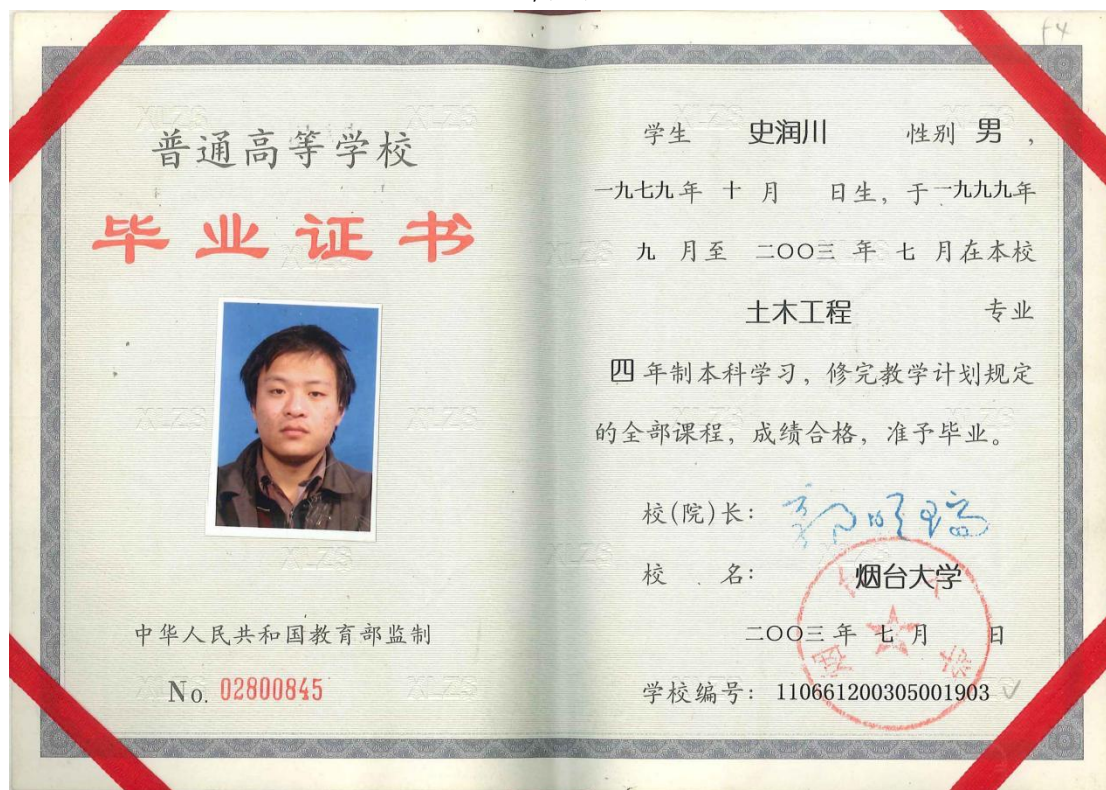 普通高等学校
毕业证书
中华人民共和国教育部监制
No. 02800845
学生 史润川 性别 男，
一九七九年 十 月 日生，于 一九九九年
九 月至 二〇〇三 年 七 月在本校
土木工程 专业
四 年制本科学习，修完教学计划规定
的全部课程，成绩合格，准予毕业。
校(院)长：
校 名： 烟台大学
二〇〇三 年 七 月 日
学校编号： 110661200305001903
XLZS